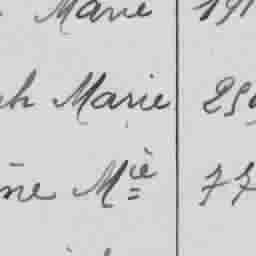 Marie 191
ph Marie 250
ne Mie 77